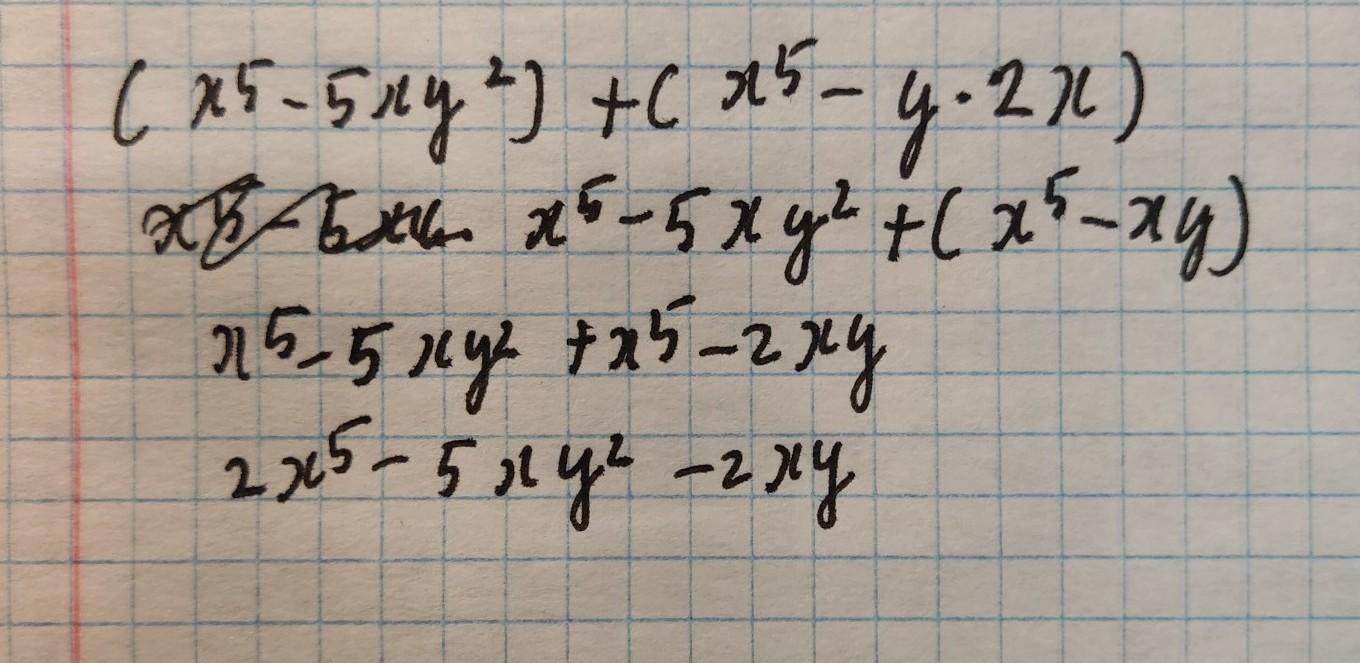 (x⁵ - 5xy²) + (x⁵ - y · 2x)
x⁵ - 5xy² + (x⁵ - xy)
x⁵ - 5xy² + x⁵ - 2xy
2x⁵ - 5xy² - 2xy